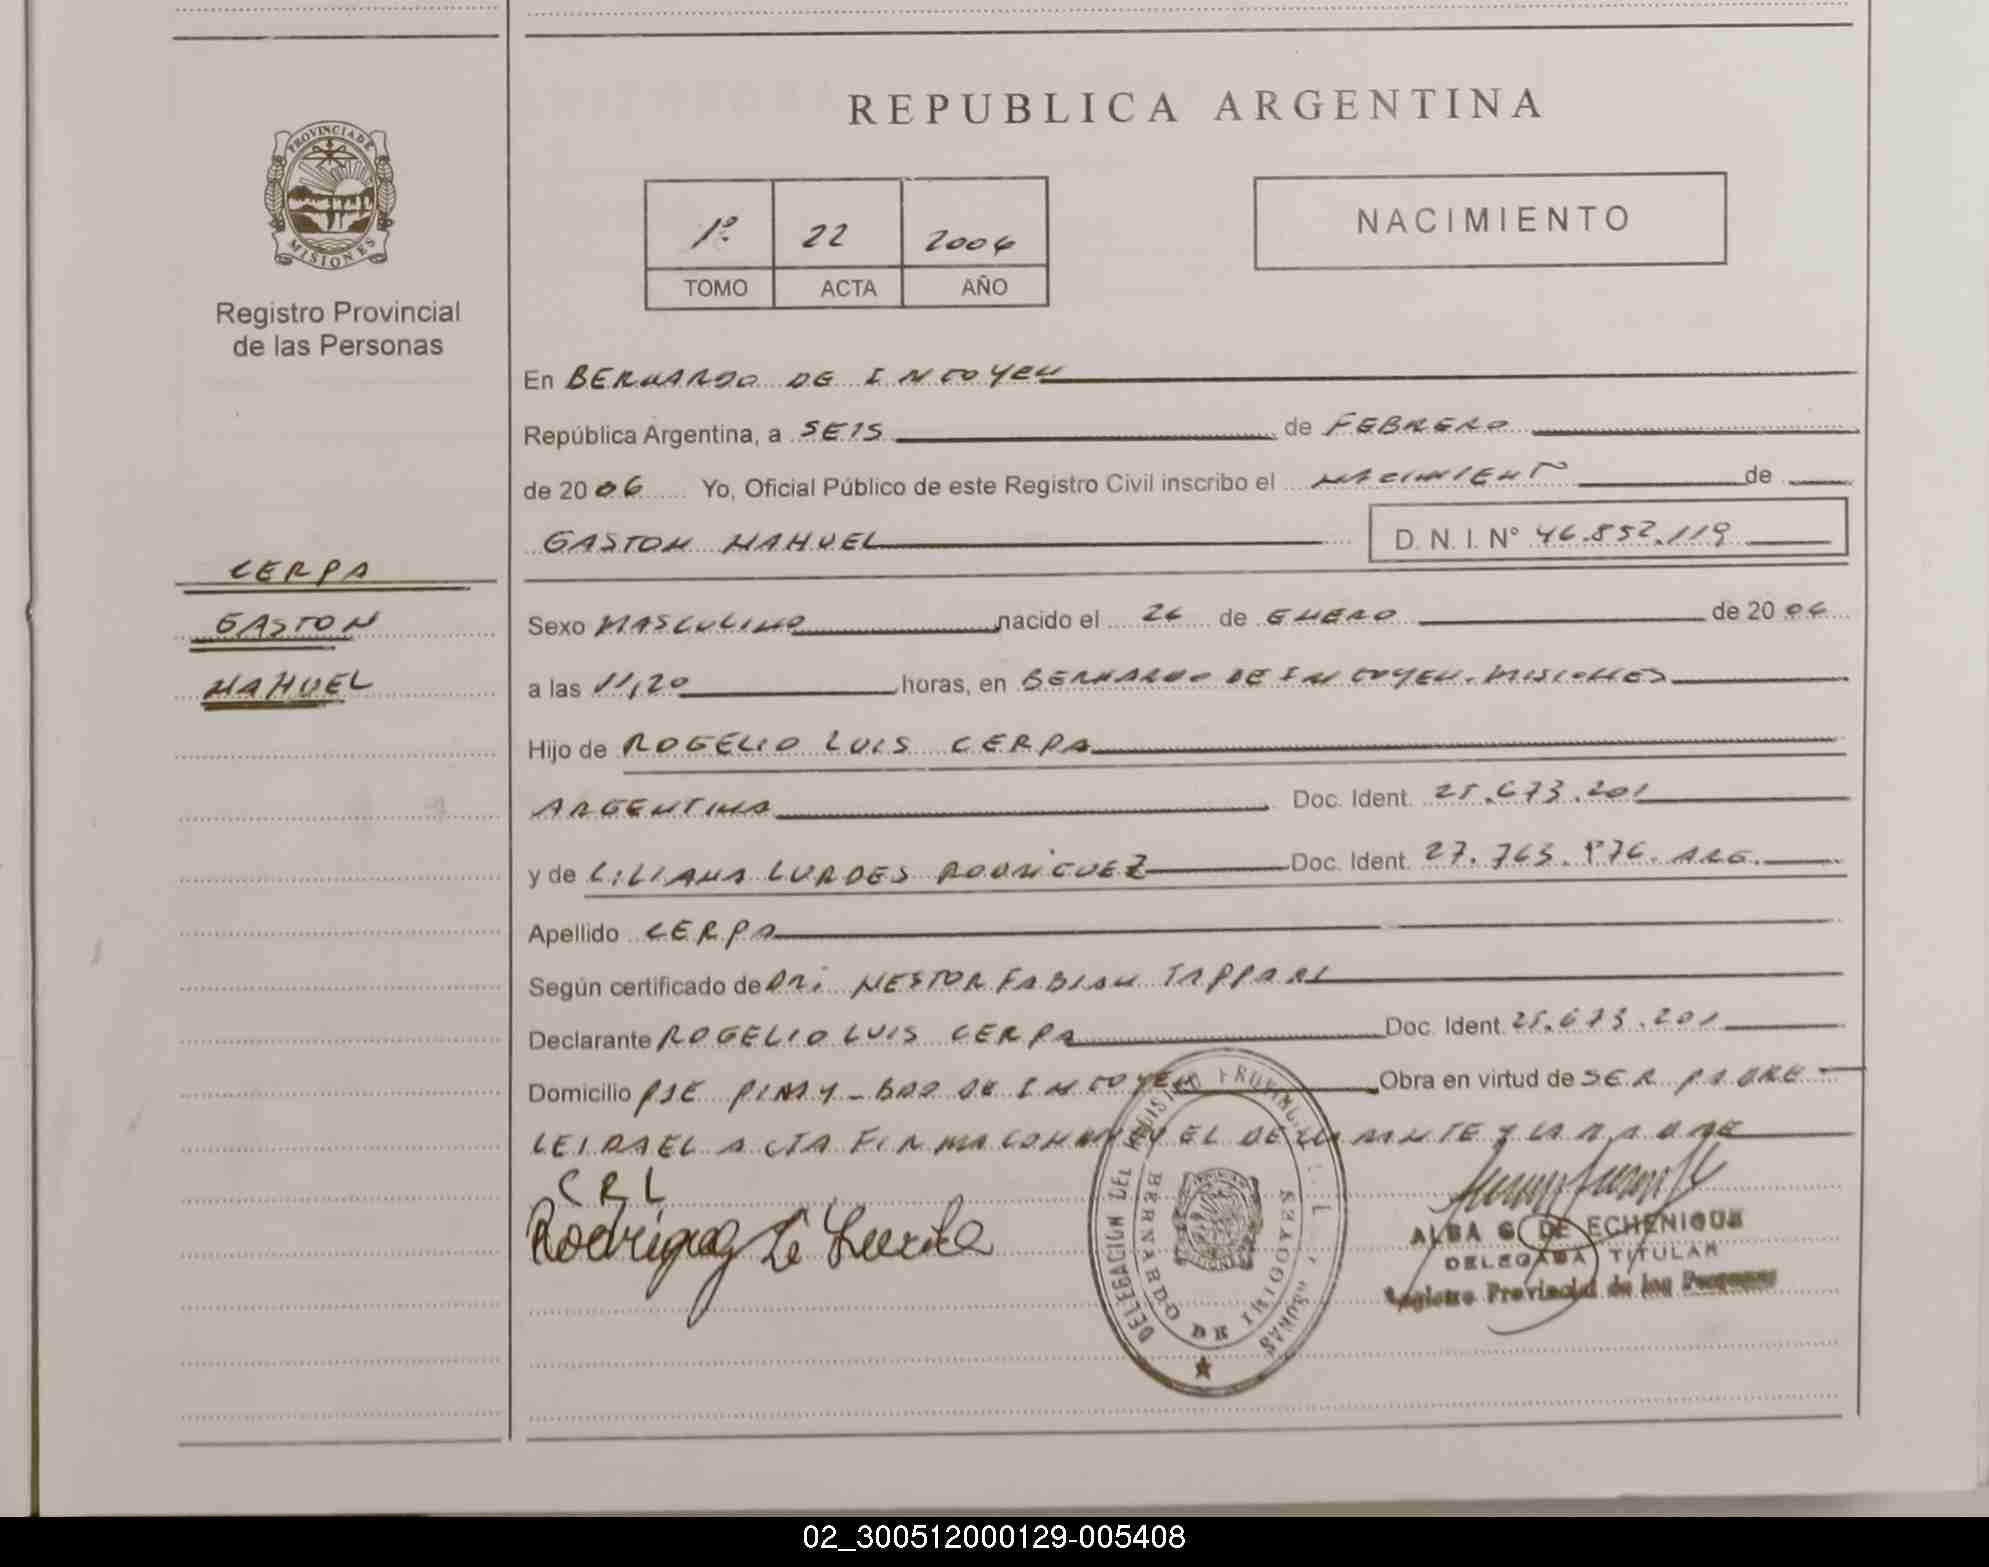 REPUBLICA ARGENTINA
PROVINCIA DE
MISIONES
Registro Provincial
de las Personas
1º 22 2006
TOMO ACTA AÑO
NACIMIENTO
En BERNARDO DE IRIGOYEN
República Argentina, a SEIS de FEBRERO
de 2006 Yo, Oficial Público de este Registro Civil inscribo el NACIMIENTO de
GASTON NAHUEL D. N. I. N° 46.852.119
CERPA
GASTON
NAHUEL
Sexo MASCULINO nacido el 26 de ENERO de 2006
a las 11,20 horas, en BERNARDO DE IRIGOYEN. MISIONES
Hijo de ROGELIO LUIS CERPA
ARGENTINA Doc. Ident. 25.673.201
y de LILIANA LURDES RODRIGUEZ Doc. Ident. 27. 763. ARG.
Apellido CERPA
Según certificado de NESTOR FABIAN TAPPARI
Declarante ROGELIO LUIS CERPA Doc. Ident. 25.673.201
Domicilio PJE PINDY - BDO DE IRIGOYEN Obra en virtud de SER PADRE
LEIDA EL ACTA FIRMA CONMIGO EL DECLARANTE Y LA MADRE
C R L
Rodriguez Li Lurde
DELEGACION DEL REGISTRO PROVINCIAL PERSONAS
BERNARDO DE IRIGOYEN
ALBA G DE ECHENIQUE
DELEGADA TITULAR
Registro Provincial de las Personas
02_300512000129-005408